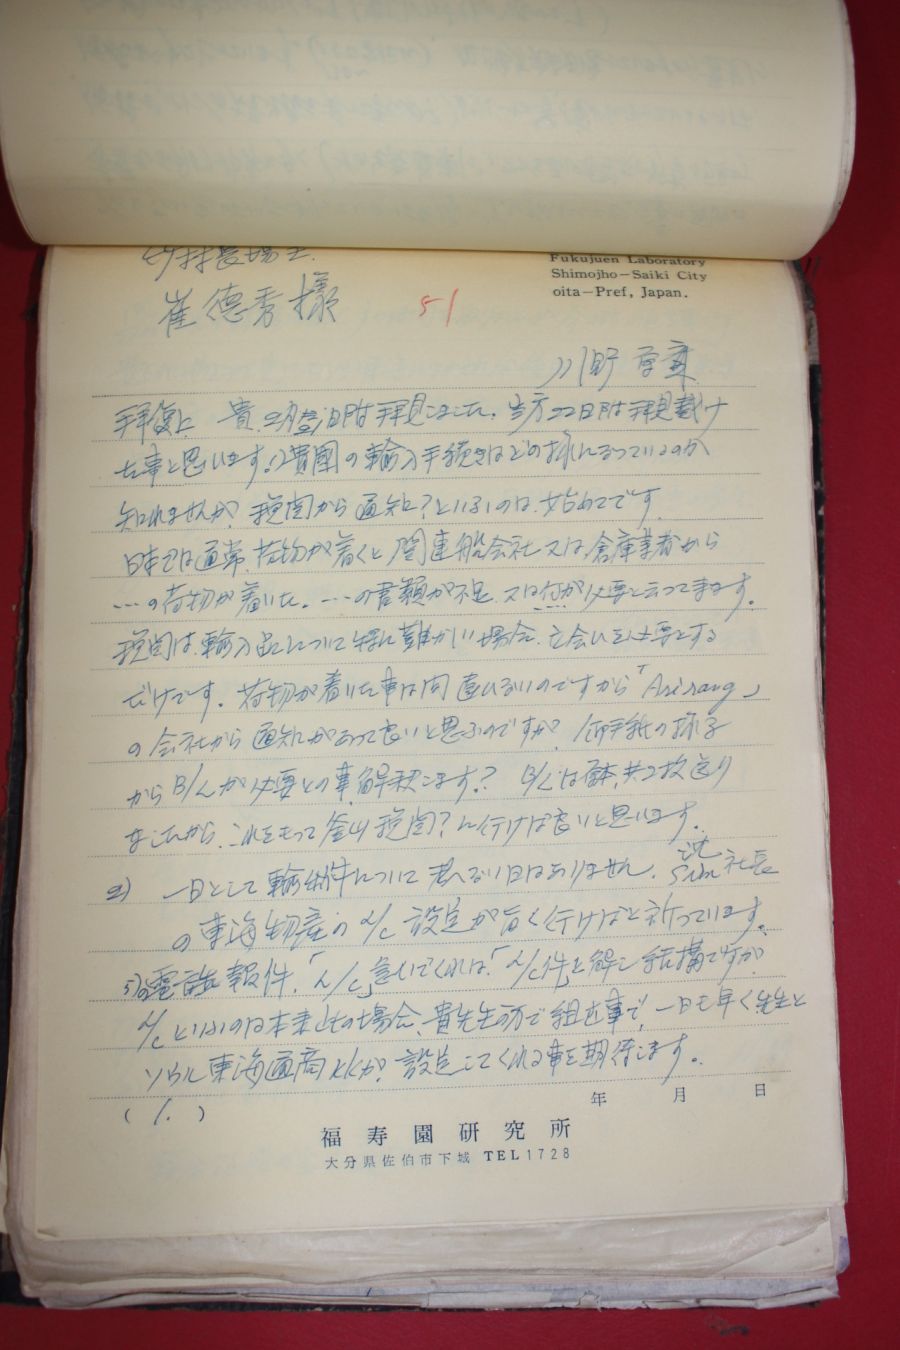 Fukujuen Laboratory
Shimojho-Saiki City
oita-Pref, Japan.
崔德秀様
51
川野
拝復に 貴 日附拝見しました。当方22日附拝見戴け
た事と思います。貴国の輸入手続きはどの様になっているのか
知れませんが? 税関から通知に?といふのは始めてです
日本では通常、荷物が着くと関連船会社又は倉庫業者から
…の荷物が着いた。…の書類が不足 又は何が必要と云ってきます。
税関は、輸入品について特に難かしい場合、立会いを必要とする
だけです。荷物が着いた事は間違いないのですから「Arirang」
の会社から通知があって良いと思ふのですが? 御手紙の様子
からB/Lが必要との事、解釈します? B/Lは 共2枚送り
ましたから、これをもって釜山税関?へ行けば良いと思います。
2) 一日として輸出件について考へない日はありません。沈 Sim 社長
の東海物産のL/C設定が旨く行けばと祈っています。
3) 電話報件、「L/C」急いでくれは、「L/C件」と解し結構ですが
L/Cといふのは本来 の場合、貴先生の方で組む事で、一日も早く先生と
ソウル東海通商KKが、設定してくれる事を期待します。
(1.) 年 月 日
福寿園研究所
大分県佐伯市下城 TEL1728